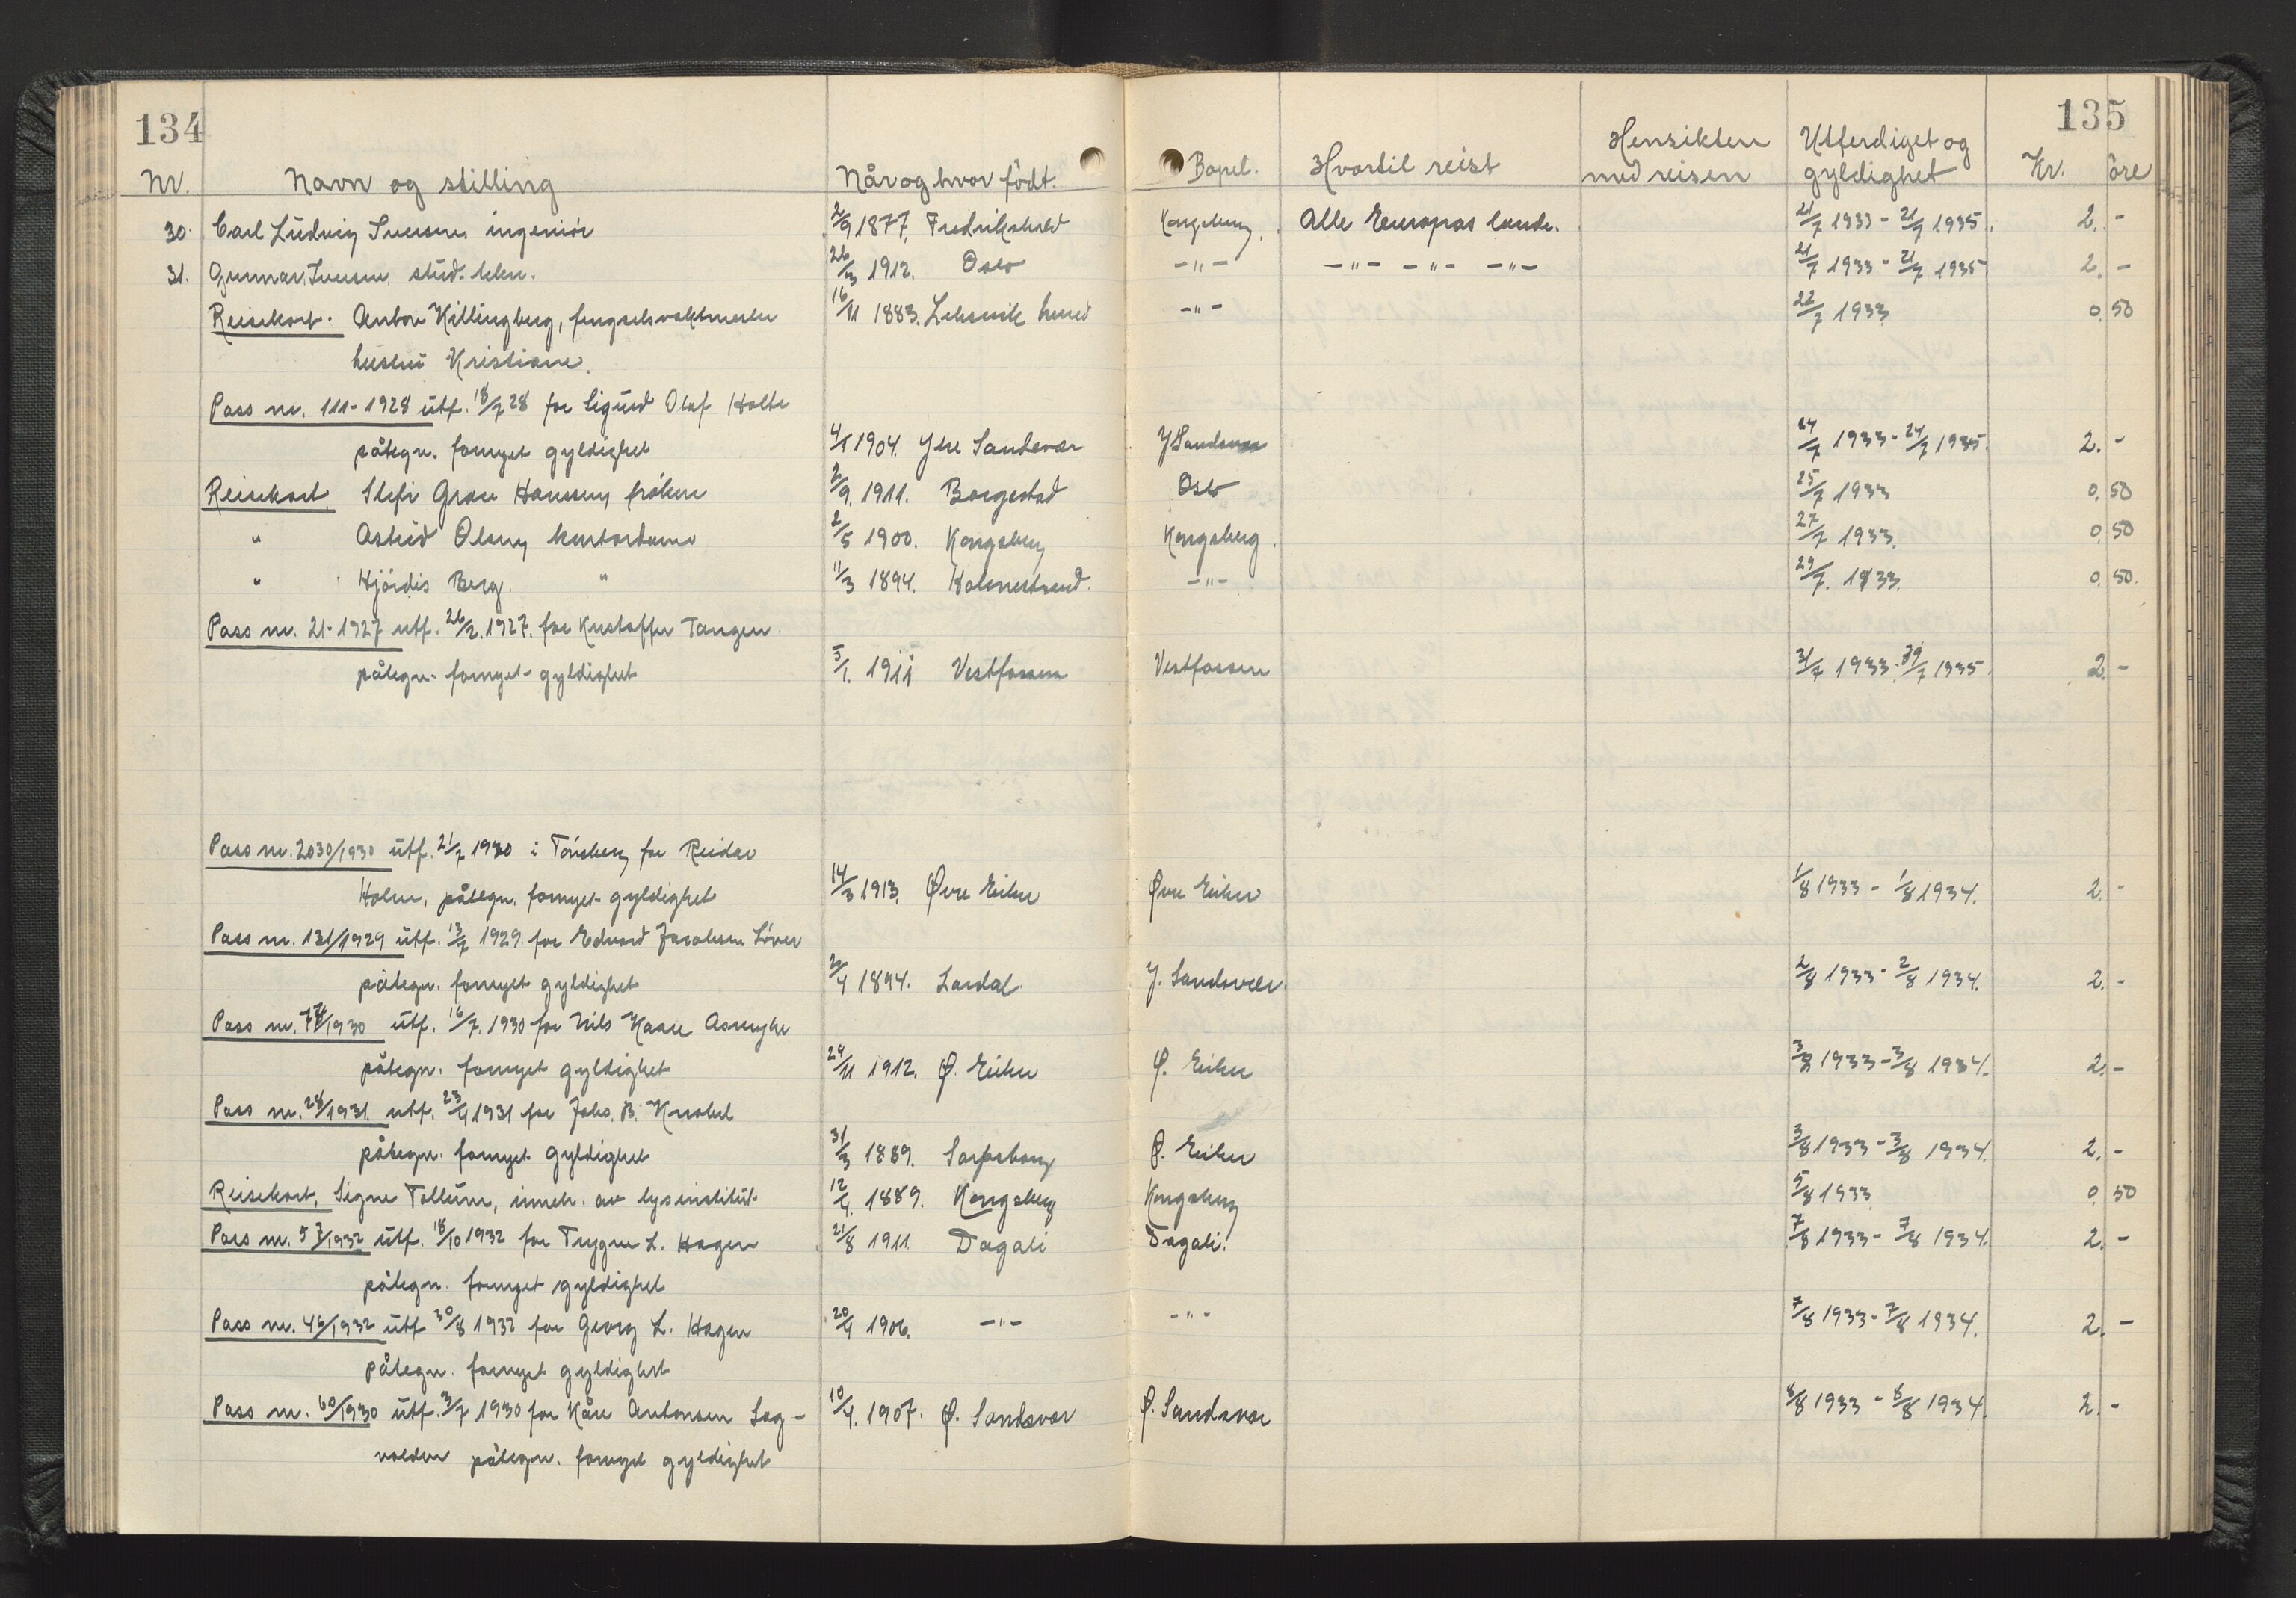 134 135
Nr. Navn og stilling Når og hvor født. Bopel. Hvortil reist Hensikten med reisen Utferdiget og gyldighet Kr. Øre
30. Carl Ludvig Iversen ingeniør 2/9 1877. Fredrikshald Kongsberg. Alle Europas lande. 21/7 1933 - 21/7 1935. 2. -
31. Gunnar Iversen stud. tekn. 26/3 1912. Oslo -"- -"- -"- -"- 21/7 1933 - 21/7 1935 2. -
Reisekort. Anton Killingberg, fengselsvaktmester 16/11 1883. Leksvik herred -"- 22/7 1933 0. 50
hustru Kristiane.
Pass nr. 111-1928 utf. 18/7 28 for Sigurd Olaf Holte
påtegn. fornyet gyldighet 4/1 1904. Ytre Sandsvær Y Sandsvær 24/7 1933 - 24/7 1935. 2. -
Reisekort. Grace Hanssen, frøken 2/9. 1911. Borgestad Oslo 25/7 1933 0. 50
" Astrid Olsen, kontordame 2/5 1900. Kongsberg Kongsberg. 27/7 1933. 0. 50
" Hjørdis Berg. " 11/3 1894. Holmestrand. -"- 29/7. 1933. 0. 50.
Pass nr. 21-1927 utf. 26/2. 1927. for Kristoffer Tangen
påtegn. fornyet gyldighet 5/1. 1911 Vestfossen Vestfossen 31/7 1933. 31/7 1935. 2. -
Pass nr. 2030/1930 utf. 21/7 1930 i Tønsberg for Reidar
Holm, påtegn. fornyet gyldighet 14/3 1913. Øvre Eiker Øvre Eiker 1/8 1933 - 1/8 1934. 2. -
Pass nr. 131/1929 utf. 13/7 1929. for Edvard Jacobsen
påtegn. fornyet gyldighet 1894. Lardal Y. Sandsvær 2/8 1933 - 2/8 1934. 2. -
Pass nr. utf. 16/7. 1930 for Nils Kaare
påtegn. fornyet gyldighet 24/11 1912. Ø. Eiker Ø. Eiker 3/8 1933 - 3/8 1934. 2. -
Pass nr. 28/1931. utf. 23/4 1931 for Johs. B. Knobel
påtegn. fornyet gyldighet 31/3 1889. Sarpsborg Ø. Eiker 3/8 1933 - 3/8 1934. 2. -
Reisekort. Signe Tollum, inneh. av lysinstitut 12/4. 1889. Kongsberg Kongsberg 5/8 1933. 0. 50
Pass nr. 57/1932 utf. 18/10 1932 for Trygve L. Hagen 21/8 1911. Dagali Dagali. 7/8 1933 - 7/8 1934. 2. -
påtegn. fornyet gyldighet
Pass nr. 46/1932 utf 30/8 1932 for Georg L. Hagen 20/4 1906. -"- -"- 7/8 1933 - 7/8 1934. 2. -
påtegn. fornyet gyldighet
Pass nr. 60/1930 utf. 3/7 1930 for Kåre Antonsen Sag- 10/4. 1907. Ø. Sandsvær Ø. Sandsvær 8/8 1933 - 8/8 1934. 2. -
volden påtegn. fornyet gyldighet